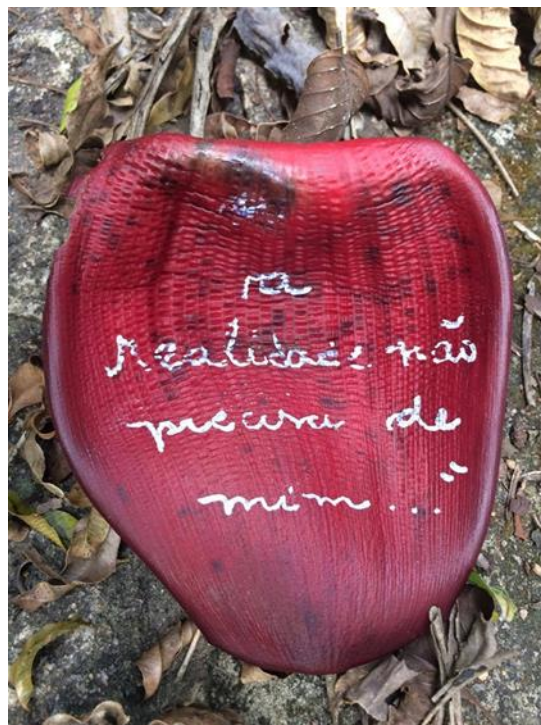 "a
realidade não
precisa de
mim..."